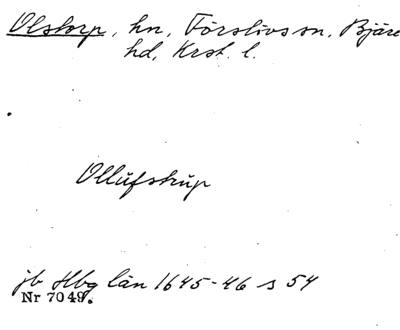 Olstorp, hn, Förslövs sn, Bjäre
hd, Krst. l.
Ollufstrup
jb Hbg län 1645-46 s 54
Nr 7049.